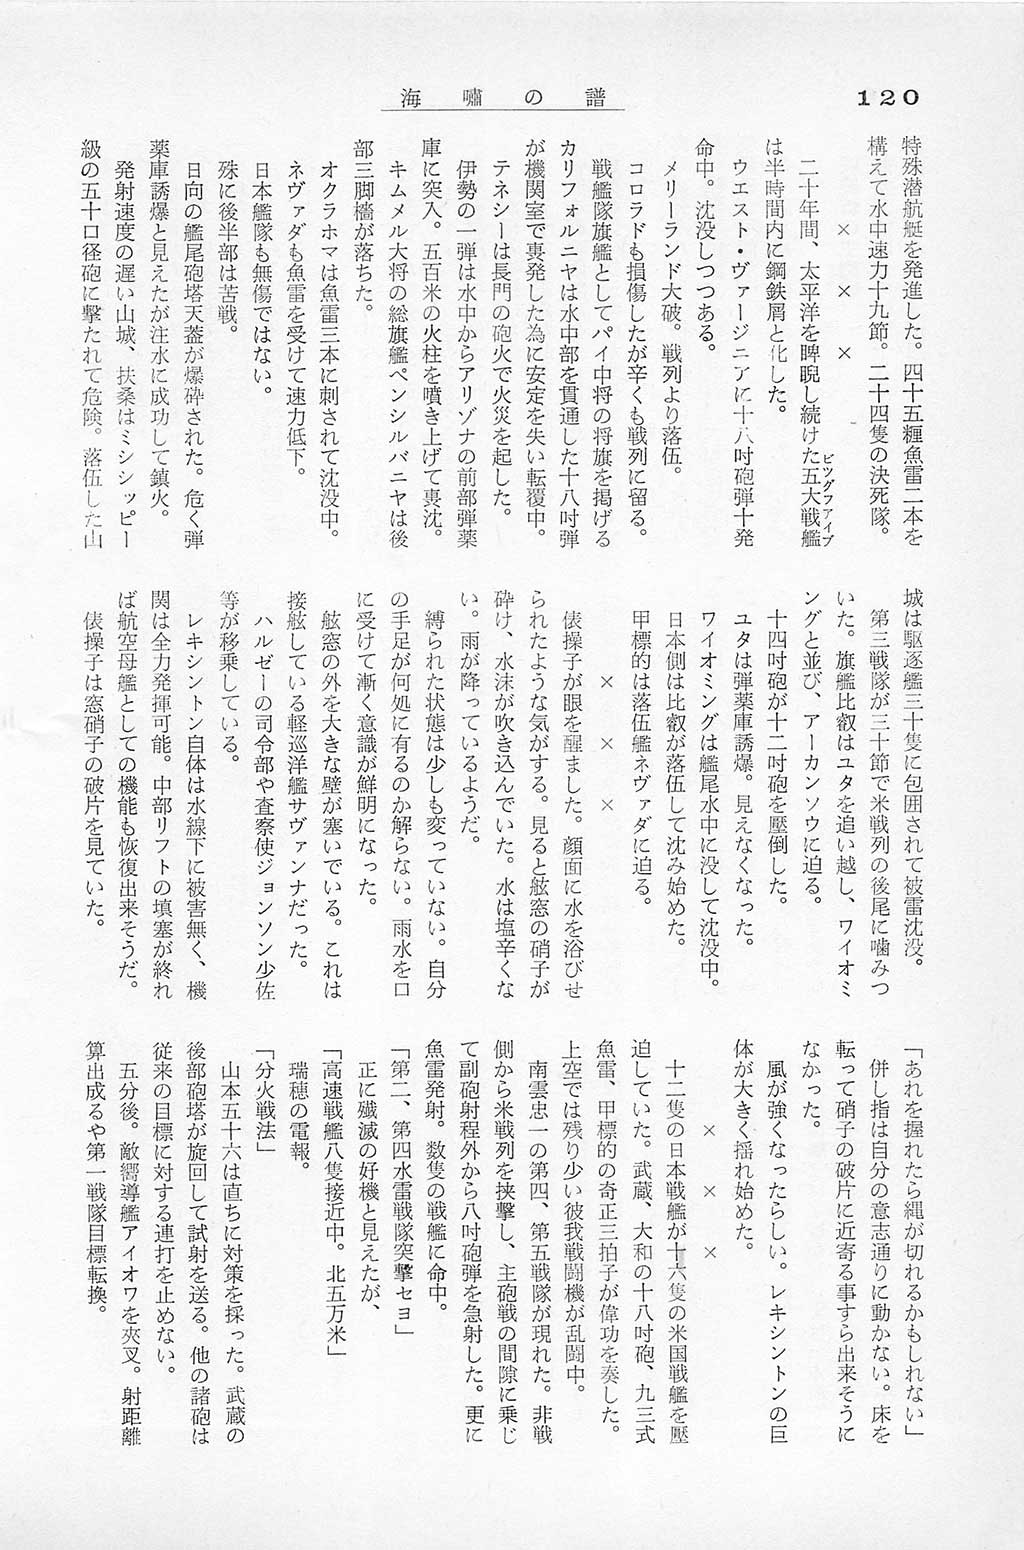 120
海嘯の譜
特殊潜航艇を発進した。四十五糎魚雷二本を
構えて水中速力十九節。二十四隻の決死隊。
×　×　×
二十年間、太平洋を睥睨し続けた五大戦艦
ビッグファイブ
は半時間内に鋼鉄屑と化した。
ウエスト・ヴァージニアに十八吋砲弾十発
命中。沈没しつつある。
メリーランド大破。戦列より落伍。
コロラドも損傷したが辛くも戦列に留る。
戦艦隊旗艦としてパイ中将の将旗を掲げる
カリフォルニヤは水中部を貫通した十八吋弾
が機関室で裏発した為に安定を失い転覆中。
テネシーは長門の砲火で火災を起した。
伊勢の一弾は水中からアリゾナの前部弾薬
庫に突入。五百米の火柱を噴き上げて裏沈。
キムメル大将の総旗艦ペンシルバニヤは後
部三脚檣が落ちた。
オクラホマは魚雷三本に刺されて沈没中。
ネヴァダも魚雷を受けて速力低下。
日本艦隊も無傷ではない。
殊に後半部は苦戦。
日向の艦尾砲塔天蓋が爆砕された。危く弾
薬庫誘爆と見えたが注水に成功して鎮火。
発射速度の遅い山城、扶桑はミシシッピー
級の五十口径砲に撃たれて危険。落伍した山
城は駆逐艦三十隻に包囲されて被雷沈没。
第三戦隊が三十節で米戦列の後尾に噛みつ
いた。旗艦比叡はユタを追い越し、ワイオミ
ングと並び、アーカンソウに迫る。
十四吋砲が十二吋砲を圧倒した。
ユタは弾薬庫誘爆。見えなくなった。
ワイオミングは艦尾水中に没して沈没中。
日本側は比叡が落伍して沈み始めた。
甲標的は落伍艦ネヴァダに迫る。
×　×　×
俵操子が眼を醒ました。顔面に水を浴びせ
られたような気がする。見ると舷窓の硝子が
砕け、水沫が吹き込んでいた。水は塩辛くな
い。雨が降っているようだ。
縛られた状態は少しも変っていない。自分
の手足が何処に有るのか解らない。雨水を口
に受けて漸く意識が鮮明になった。
舷窓の外を大きな壁が塞いでいる。これは
接舷している軽巡洋艦サヴァンナだった。
ハルゼーの司令部や査察使ジョンソン少佐
等が移乗している。
レキシントン自体は水線下に被害無く、機
関は全力発揮可能。中部リフトの填塞が終れ
ば航空母艦としての機能も恢復出来そうだ。
俵操子は窓硝子の破片を見ていた。
「あれを握れたら縄が切れるかもしれない」
併し指は自分の意志通りに動かない。床を
転って硝子の破片に近寄る事すら出来そうに
なかった。
風が強くなったらしい。レキシントンの巨
体が大きく揺れ始めた。
×　×　×
十二隻の日本戦艦が十六隻の米国戦艦を圧
迫していた。武蔵、大和の十八吋砲、九三式
魚雷、甲標的の奇正三拍子が偉功を奏した。
上空では残り少い彼我戦闘機が乱闘中。
南雲忠一の第四、第五戦隊が現れた。非戦
側から米戦列を挟撃し、主砲戦の間隙に乗じ
て副砲射程外から八吋砲弾を急射した。更に
魚雷発射。数隻の戦艦に命中。
「第二、第四水雷戦隊突撃セヨ」
正に殱滅の好機と見えたが、
「高速戦艦八隻接近中。北五万米」
瑞穂の電報。
「分火戦法」
山本五十六は直ちに対策を採った。武蔵の
後部砲塔が旋回して試射を送る。他の諸砲は
従来の目標に対する連打を止めない。
五分後。敵嚮導艦アイオワを夾叉。射距離
算出成るや第一戦隊目標転換。